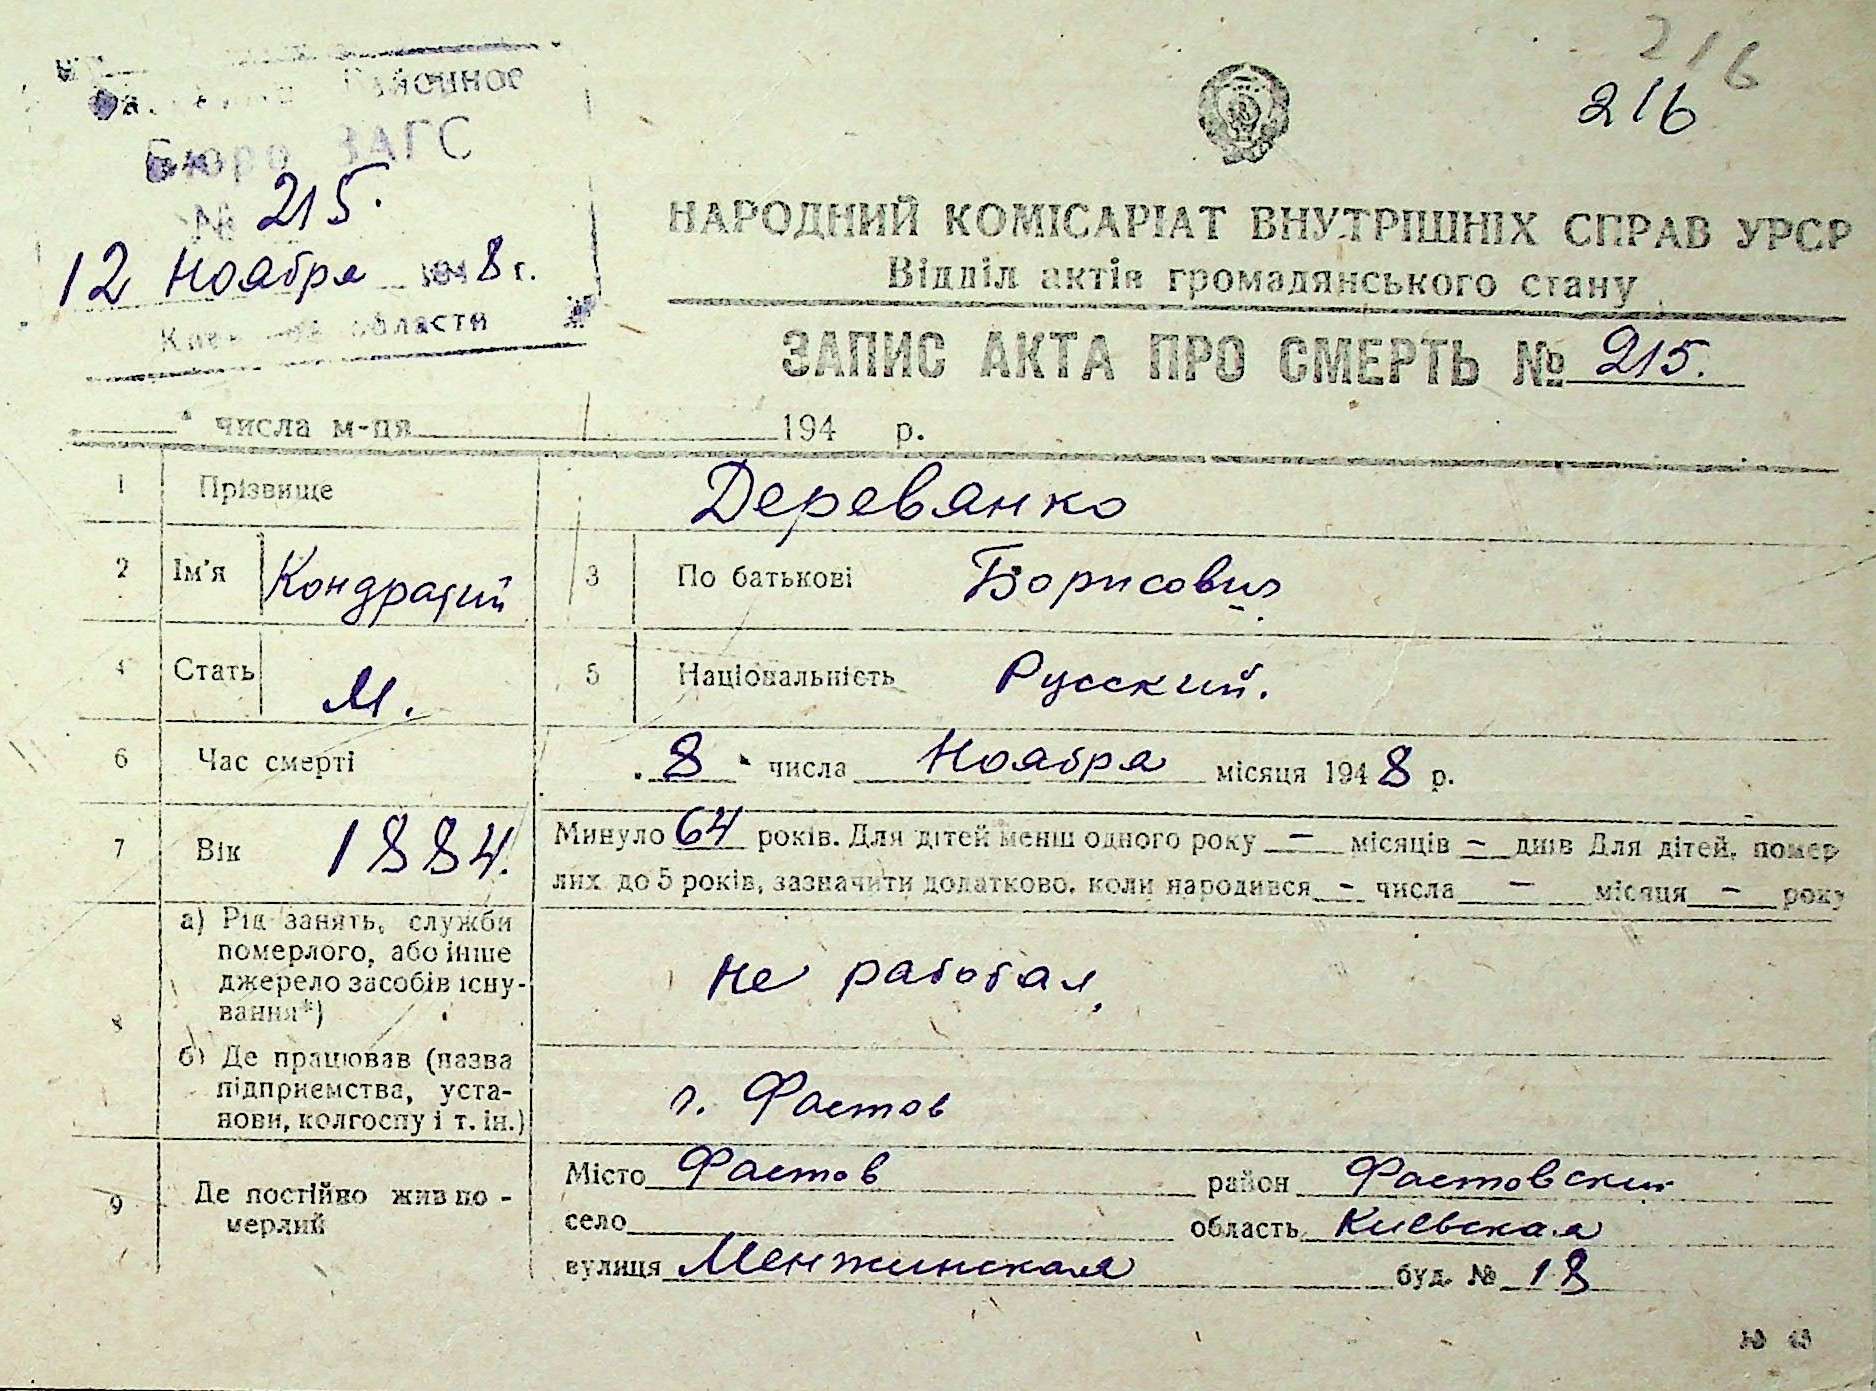 216
216
Районное
Бюро ЗАГС
№ 215.
12 Ноября 1948 г.
области
НАРОДНИЙ КОМІСАРІАТ ВНУТРІШНІХ СПРАВ УРСР
Відділ актів громадянського стану
ЗАПИС АКТА ПРО СМЕРТЬ № 215.
числа м-ця 194 р.
1 Прізвище Деревянко
2 Ім'я Кондратий 3 По батькові Борисович
4 Стать М. 5 Національність Русский.
6 Час смерті 8 числа Ноября місяця 1948 р.
7 Вік 1884. Минуло 64 років. Для дітей менш одного року – місяців – днів Для дітей, помер
лих до 5 років, зазначити додатково, коли народився – числа – місяця – року
8 а) Рід занять, служби
померлого, або інше
джерело засобів існу-
вання*)
не работал,
б) Де працював (назва
підприємства, уста-
нови, колгоспу і т. ін.)
г. Фастов
9 Де постійно жив по-
мерлий
Місто Фастов район Фастовский
село область Киевская
вулиця Менжинская буд. № 18